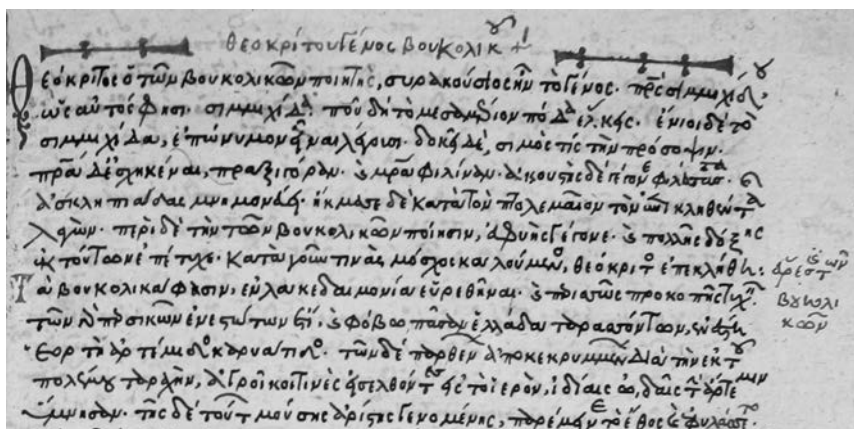 θεοκρίτου γένος βουκολικ
Θεόκριτος ὁ τῶν βουκολικῶν ποιητὴς, συρακούσιος ἦν τὸ γένος. πρς σιμμιχίδου,
ὡς αὐτός φησι. σιμμιχίδα. ποῦ δὴ τὸ μεσαμβριον πόδα ἕλκεις. ἔνιοι δὲ τὸ
σιμμιχίδα, ἐπώνυμον εἶναι λέγουσι. δοκεῖ δὲ, σιμός τίς τὴν πρόσοψιν.
πρα δ' ἐσχηκέναι, πραξαγόραν. καὶ μρα φιλίναν. ἀκουστὴς δὲ γέγονε
ἀσκληπιάδας μνημονεύει. ἤκμασε δὲ κατὰ τὸν πτολεμαῖον τὸν ἐπικληθέντα
λαγωόν. περὶ δὲ τὴν τῶν βουκολικῶν ποίησιν, εὐφυὴς γέγονε. καὶ πολλῆς δόξης
ἐκ τούτων ἐπέτυχε. κατὰ γοῦν τινὰς, μόσχος καλούμενος, θεόκριτος ἐπεκλήθη:
Τὰ βουκολικά φασιν, ἐν λακεδαιμονία εὑρεθῆναι. καὶ περισσῶς προκοπῆς τυχεῖν.
τῶν περσικῶν ἐνεστώτων ἔτι. καὶ φόβω πᾶσαν ἑλλάδα ταρασσόντων, ἐνέστη
ἑορτὴ ἀρτέμιδος καρυατιδος. τῶν δὲ παρθένων ἀποκεκρυμμένων διὰ τὴν ἐκ τοῦ
πολέμου ταραχὴν, ἀγροῖκοι τινὲς εἰσελθόντες εἰς τὸ ἱερὸν, ἰδίαις ὠδαῖς τὴν ἄρτεμιν
ὕμνησαν. τῆς δὲ τούτων μούσης ἀρίστης γενομένης, παρέμεινε τὸ ἔθος καὶ ἐφυλάσσετο.
εὕρεσις τῶν
βουκολι
κῶν